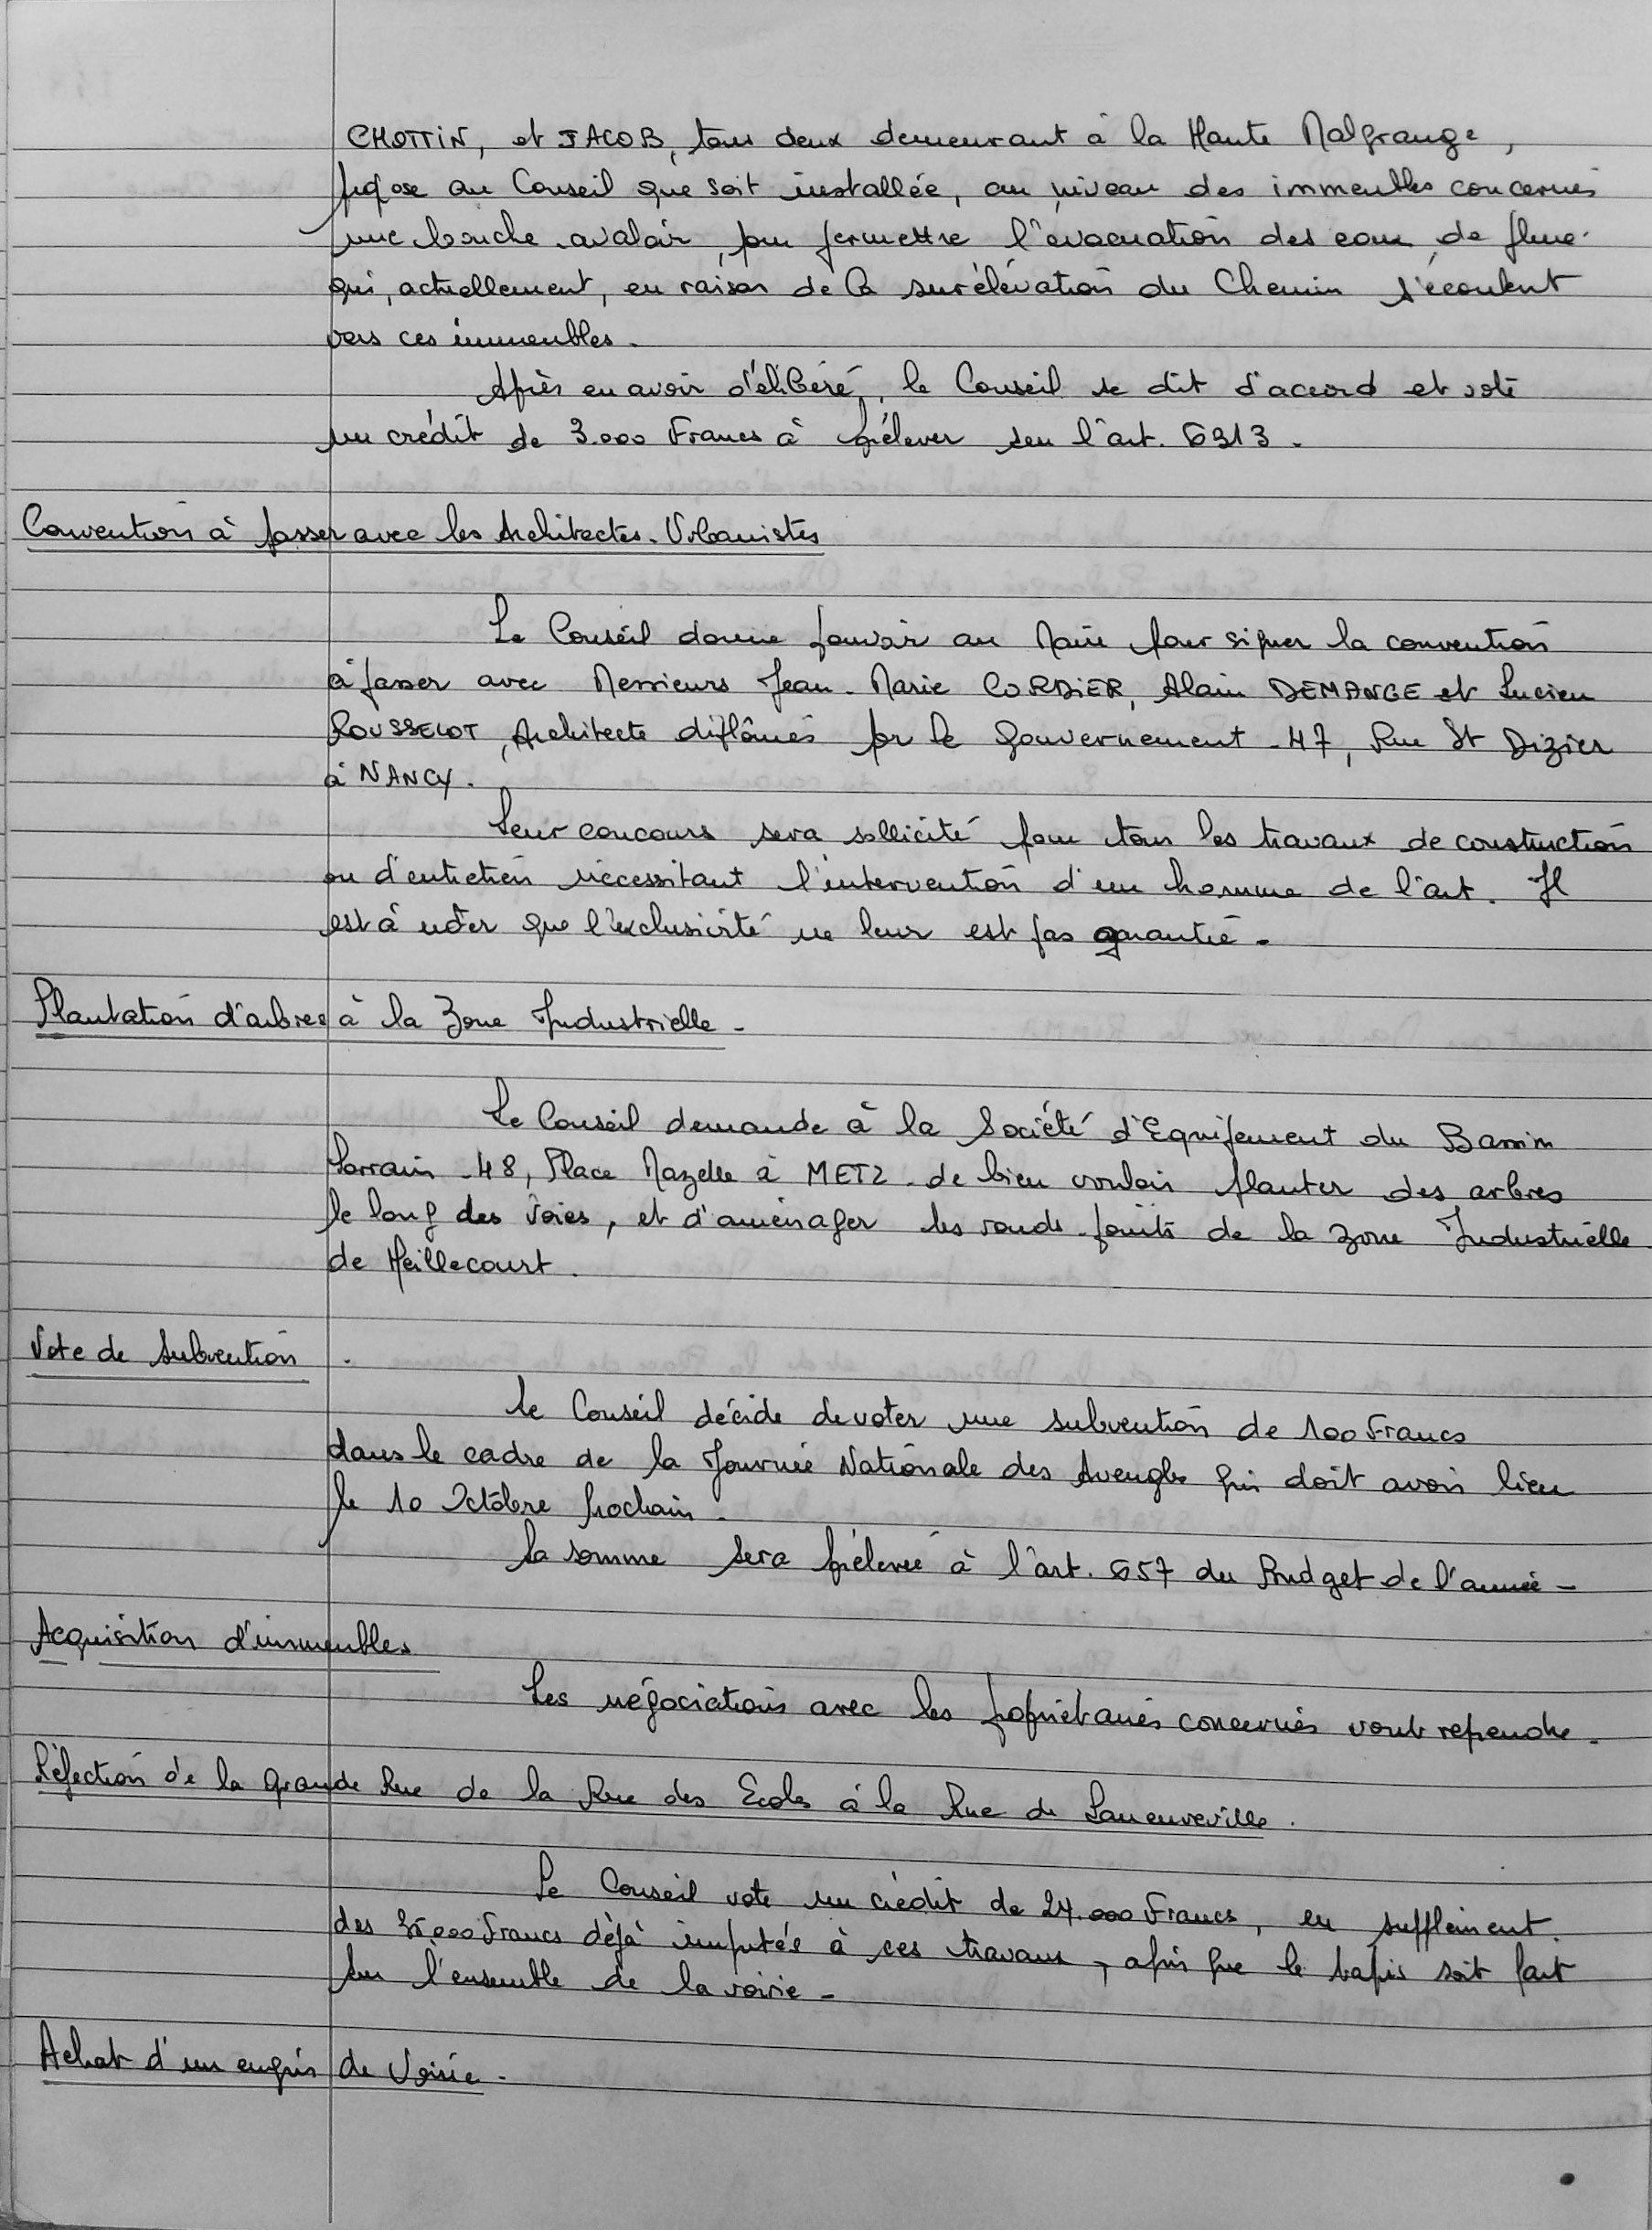 CHOTTIN, et JACOB, tous deux demeurant à la Haute Malgrange,
propose au Conseil que soit installée, au niveau des immeubles concernés
une bouche avaloir, pour permettre l'évacuation des eaux de pluie
qui, actuellement, en raison de la surélévation du Chemin s'écoulent
vers ces immeubles.
Après en avoir délibéré, le Conseil se dit d'accord et vote
un crédit de 3.000 Francs à prélever sur l'art. 6313.
Convention à passer avec les Architectes-Urbanistes
Le Conseil donne pouvoir au Maire pour signer la convention
à passer avec Messieurs Jean-Marie CORDIER, Alain DEMANGE et Lucien
ROUSSELOT, Architecte diplômés par le Gouvernement - 47, Rue St Dizier
à NANCY.
Leur concours sera sollicité pour tous les travaux de construction
ou d'entretien nécessitant l'intervention d'un homme de l'art. Il
est à noter que l'exclusivité ne leur est pas garantie.
Plantation d'arbres à la Zone Industrielle -
Le Conseil demande à la Société d'Equipement du Bassin
Lorrain - 48, Place Mazelle à METZ - de bien vouloir planter des arbres
le long des voies, et d'aménager les ronds-points de la zone Industrielle
de Heillecourt.
Vote de Subvention.
Le Conseil décide de voter une subvention de 100 Francs
dans le cadre de la Journée Nationale des Aveugles qui doit avoir lieu
le 10 Octobre prochain.
La somme sera prélevée à l'art. 657 du Budget de l'année -
Acquisition d'immeubles
Les négociations avec les propriétaires concernés vont reprendre.
Réfection de la Grande Rue de la Rue des Ecoles à la Rue de Laneuveville.
Le Conseil vote un crédit de 24.000 Francs, en supplément
des Francs déjà imputés à ces travaux, afin que le tapis soit fait
sur l'ensemble de la voirie -
Achat d'un engin de Voirie -